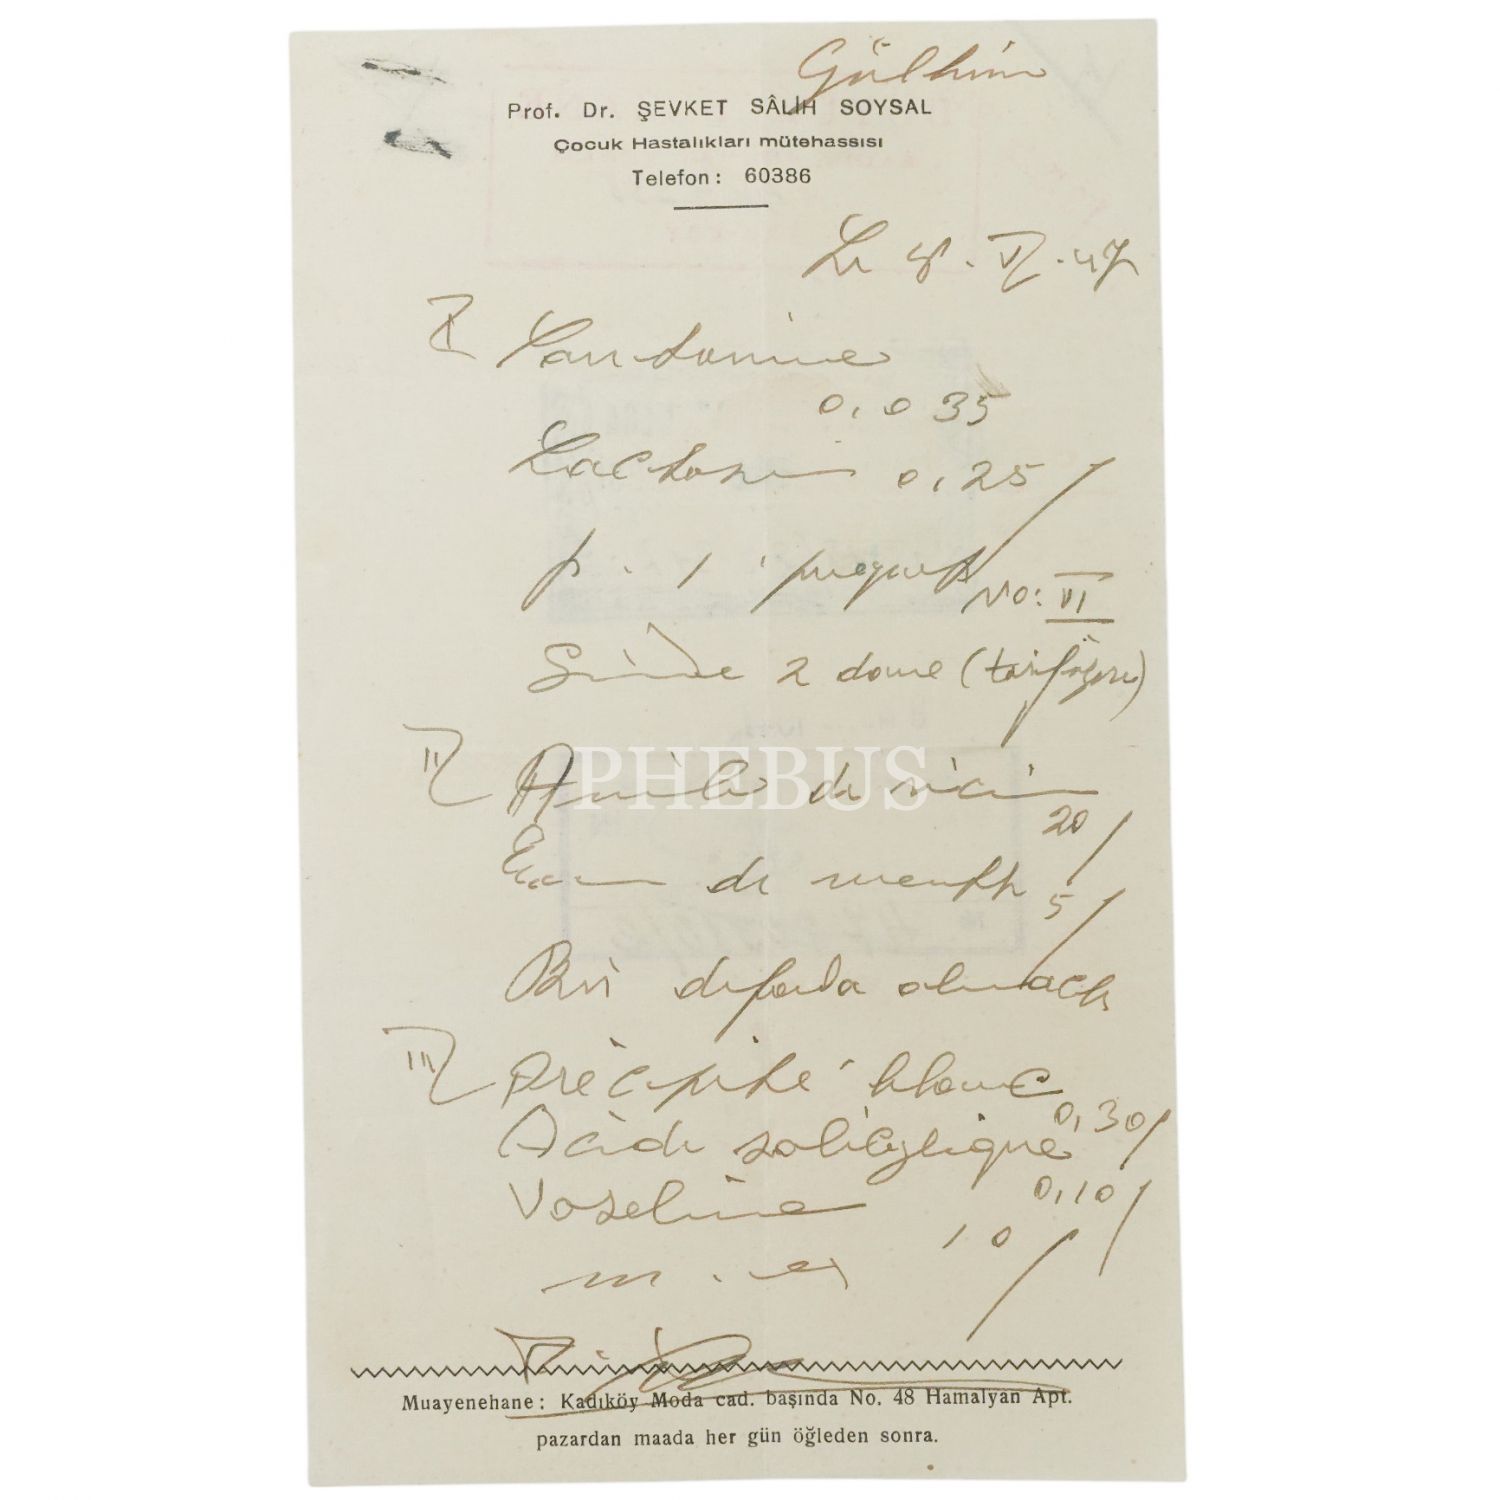 Gülhim
Prof. Dr. ŞEVKET SÂLİH SOYSAL
Çocuk Hastalıkları mütehassısı
Telefon: 60386
Le 8. VI. 47
I Santonine
0,035
Lactose 0,25
p. 1 paquet
No: VI
Günde 2 dane (tarif üzere)
II Huile de ricin
20
PHEBUS
Eau de menthe 5
Bir defada alınacak
III précipité blanc
0,30
Acide salicylique
0,10
Vaseline
10
m.
Muayenehane: Kadıköy Moda cad. başında No. 48 Hamalyan Apt.
pazardan maada her gün öğleden sonra.